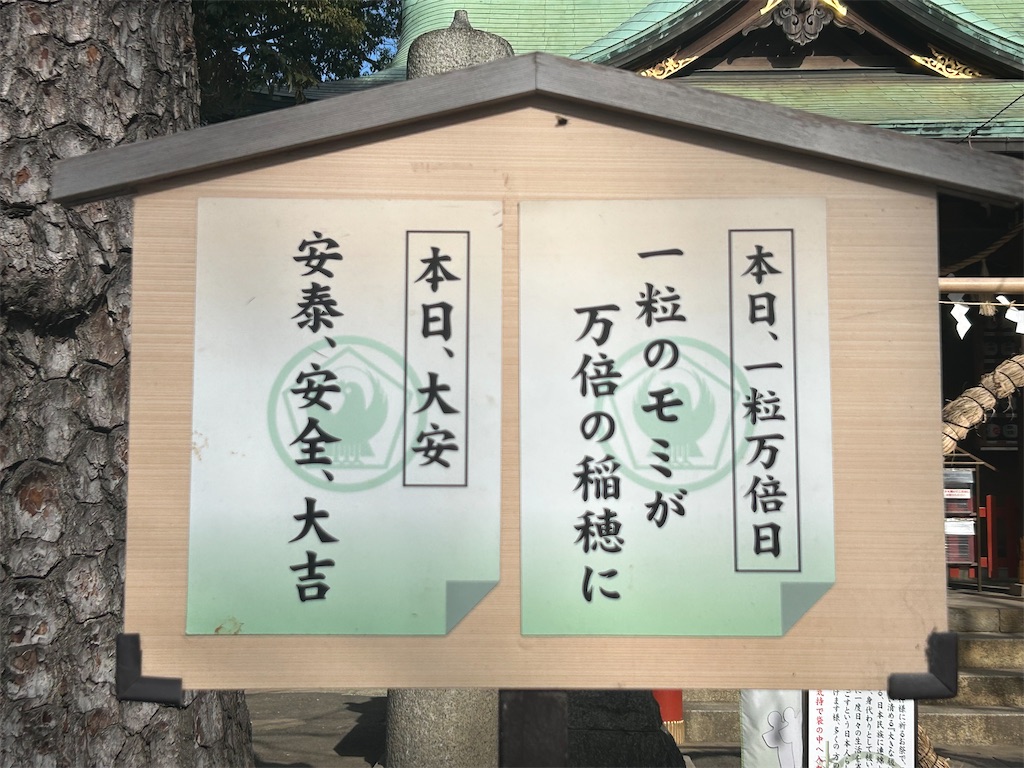 本日、一粒万倍日
一粒のモミが
万倍の稲穂に
本日、大安
安泰、安全、大吉